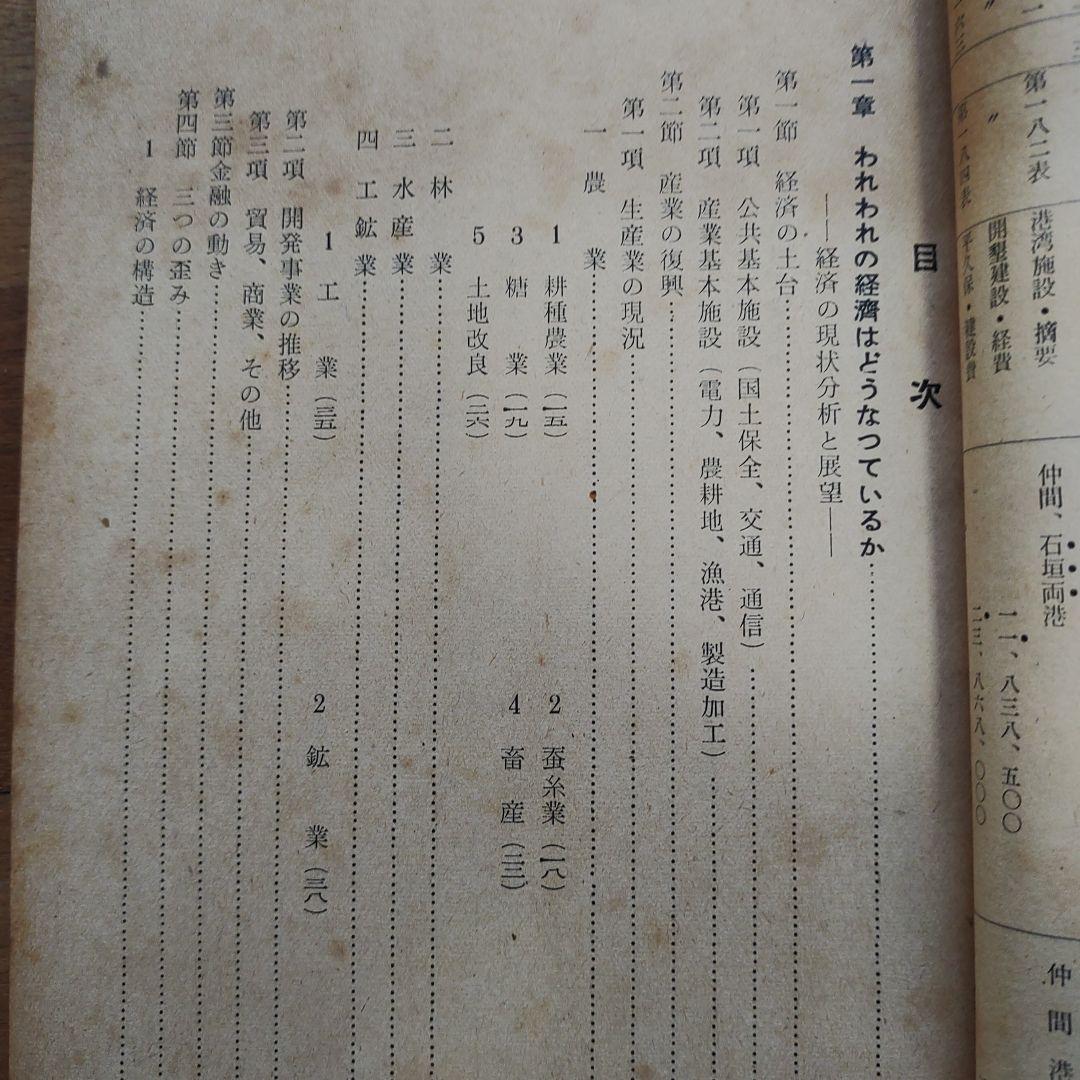 第一八二表 港湾施設・摘要 仲間、石垣両港 仲間港
〃 開墾建設・経費 一一、八三八、五〇〇
第一八四表 平久保・建設費 二三、八六八、〇〇〇
目次
第一章 われわれの経済はどうなつているか
――経済の現状分析と展望――
第一節 経済の土台
第一項 公共基本施設(国土保全、交通、通信)
第二項 産業基本施設(電力、農耕地、漁港、製造加工)
第二節 産業の復興
第一項 生産業の現況
一 農業
1 耕種農業(一五) 2 蚕糸業(一八)
3 糖業(一九) 4 畜産(二二)
5 土地改良(二六)
二 林業
三 水産業
四 工鉱業
1 工業(三五) 2 鉱業(三八)
第二項 開発事業の推移
第三項 貿易、商業、その他
第三節 金融の動き
第四節 三つの歪み
1 経済の構造